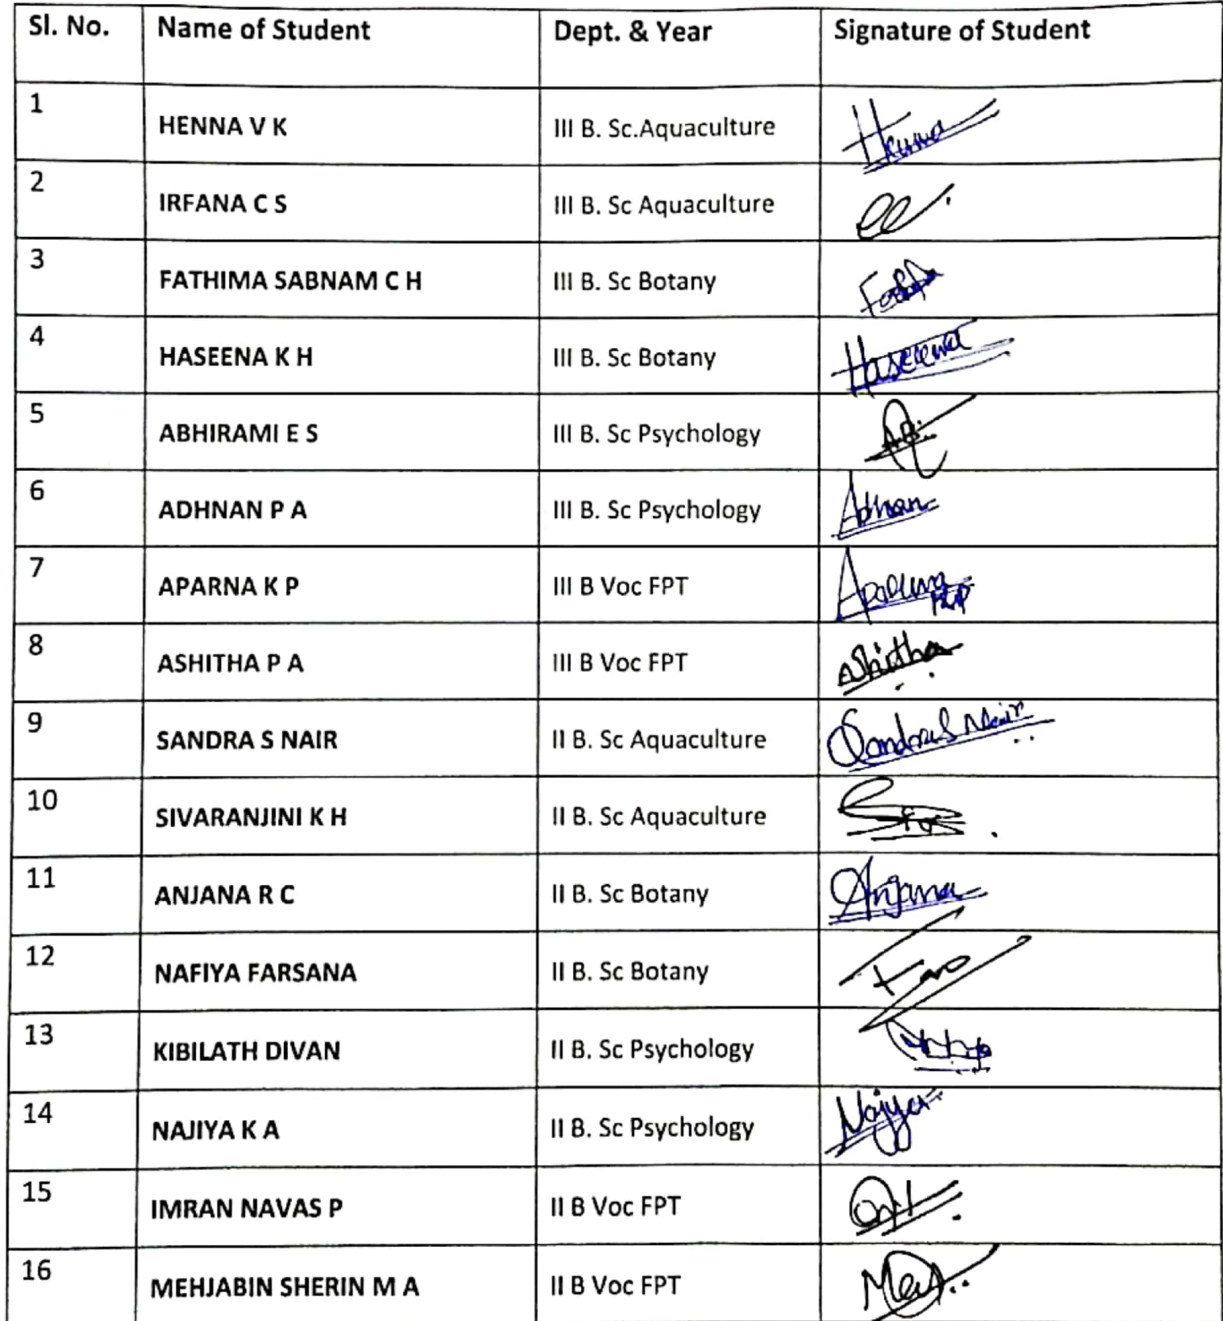 Sl. No. Name of Student Dept. & Year Signature of Student
1 HENNA V K III B. Sc.Aquaculture Henna
2 IRFANA C S III B. Sc Aquaculture
3 FATHIMA SABNAM C H III B. Sc Botany
4 HASEENA K H III B. Sc Botany Haseena
5 ABHIRAMI E S III B. Sc Psychology
6 ADHNAN P A III B. Sc Psychology Adhnan
7 APARNA K P III B Voc FPT Aparna
8 ASHITHA P A III B Voc FPT Ashitha
9 SANDRA S NAIR II B. Sc Aquaculture Sandra S Nair
10 SIVARANJINI K H II B. Sc Aquaculture
11 ANJANA R C II B. Sc Botany Anjana
12 NAFIYA FARSANA II B. Sc Botany
13 KIBILATH DIVAN II B. Sc Psychology
14 NAJIYA K A II B. Sc Psychology
15 IMRAN NAVAS P II B Voc FPT
16 MEHJABIN SHERIN M A II B Voc FPT